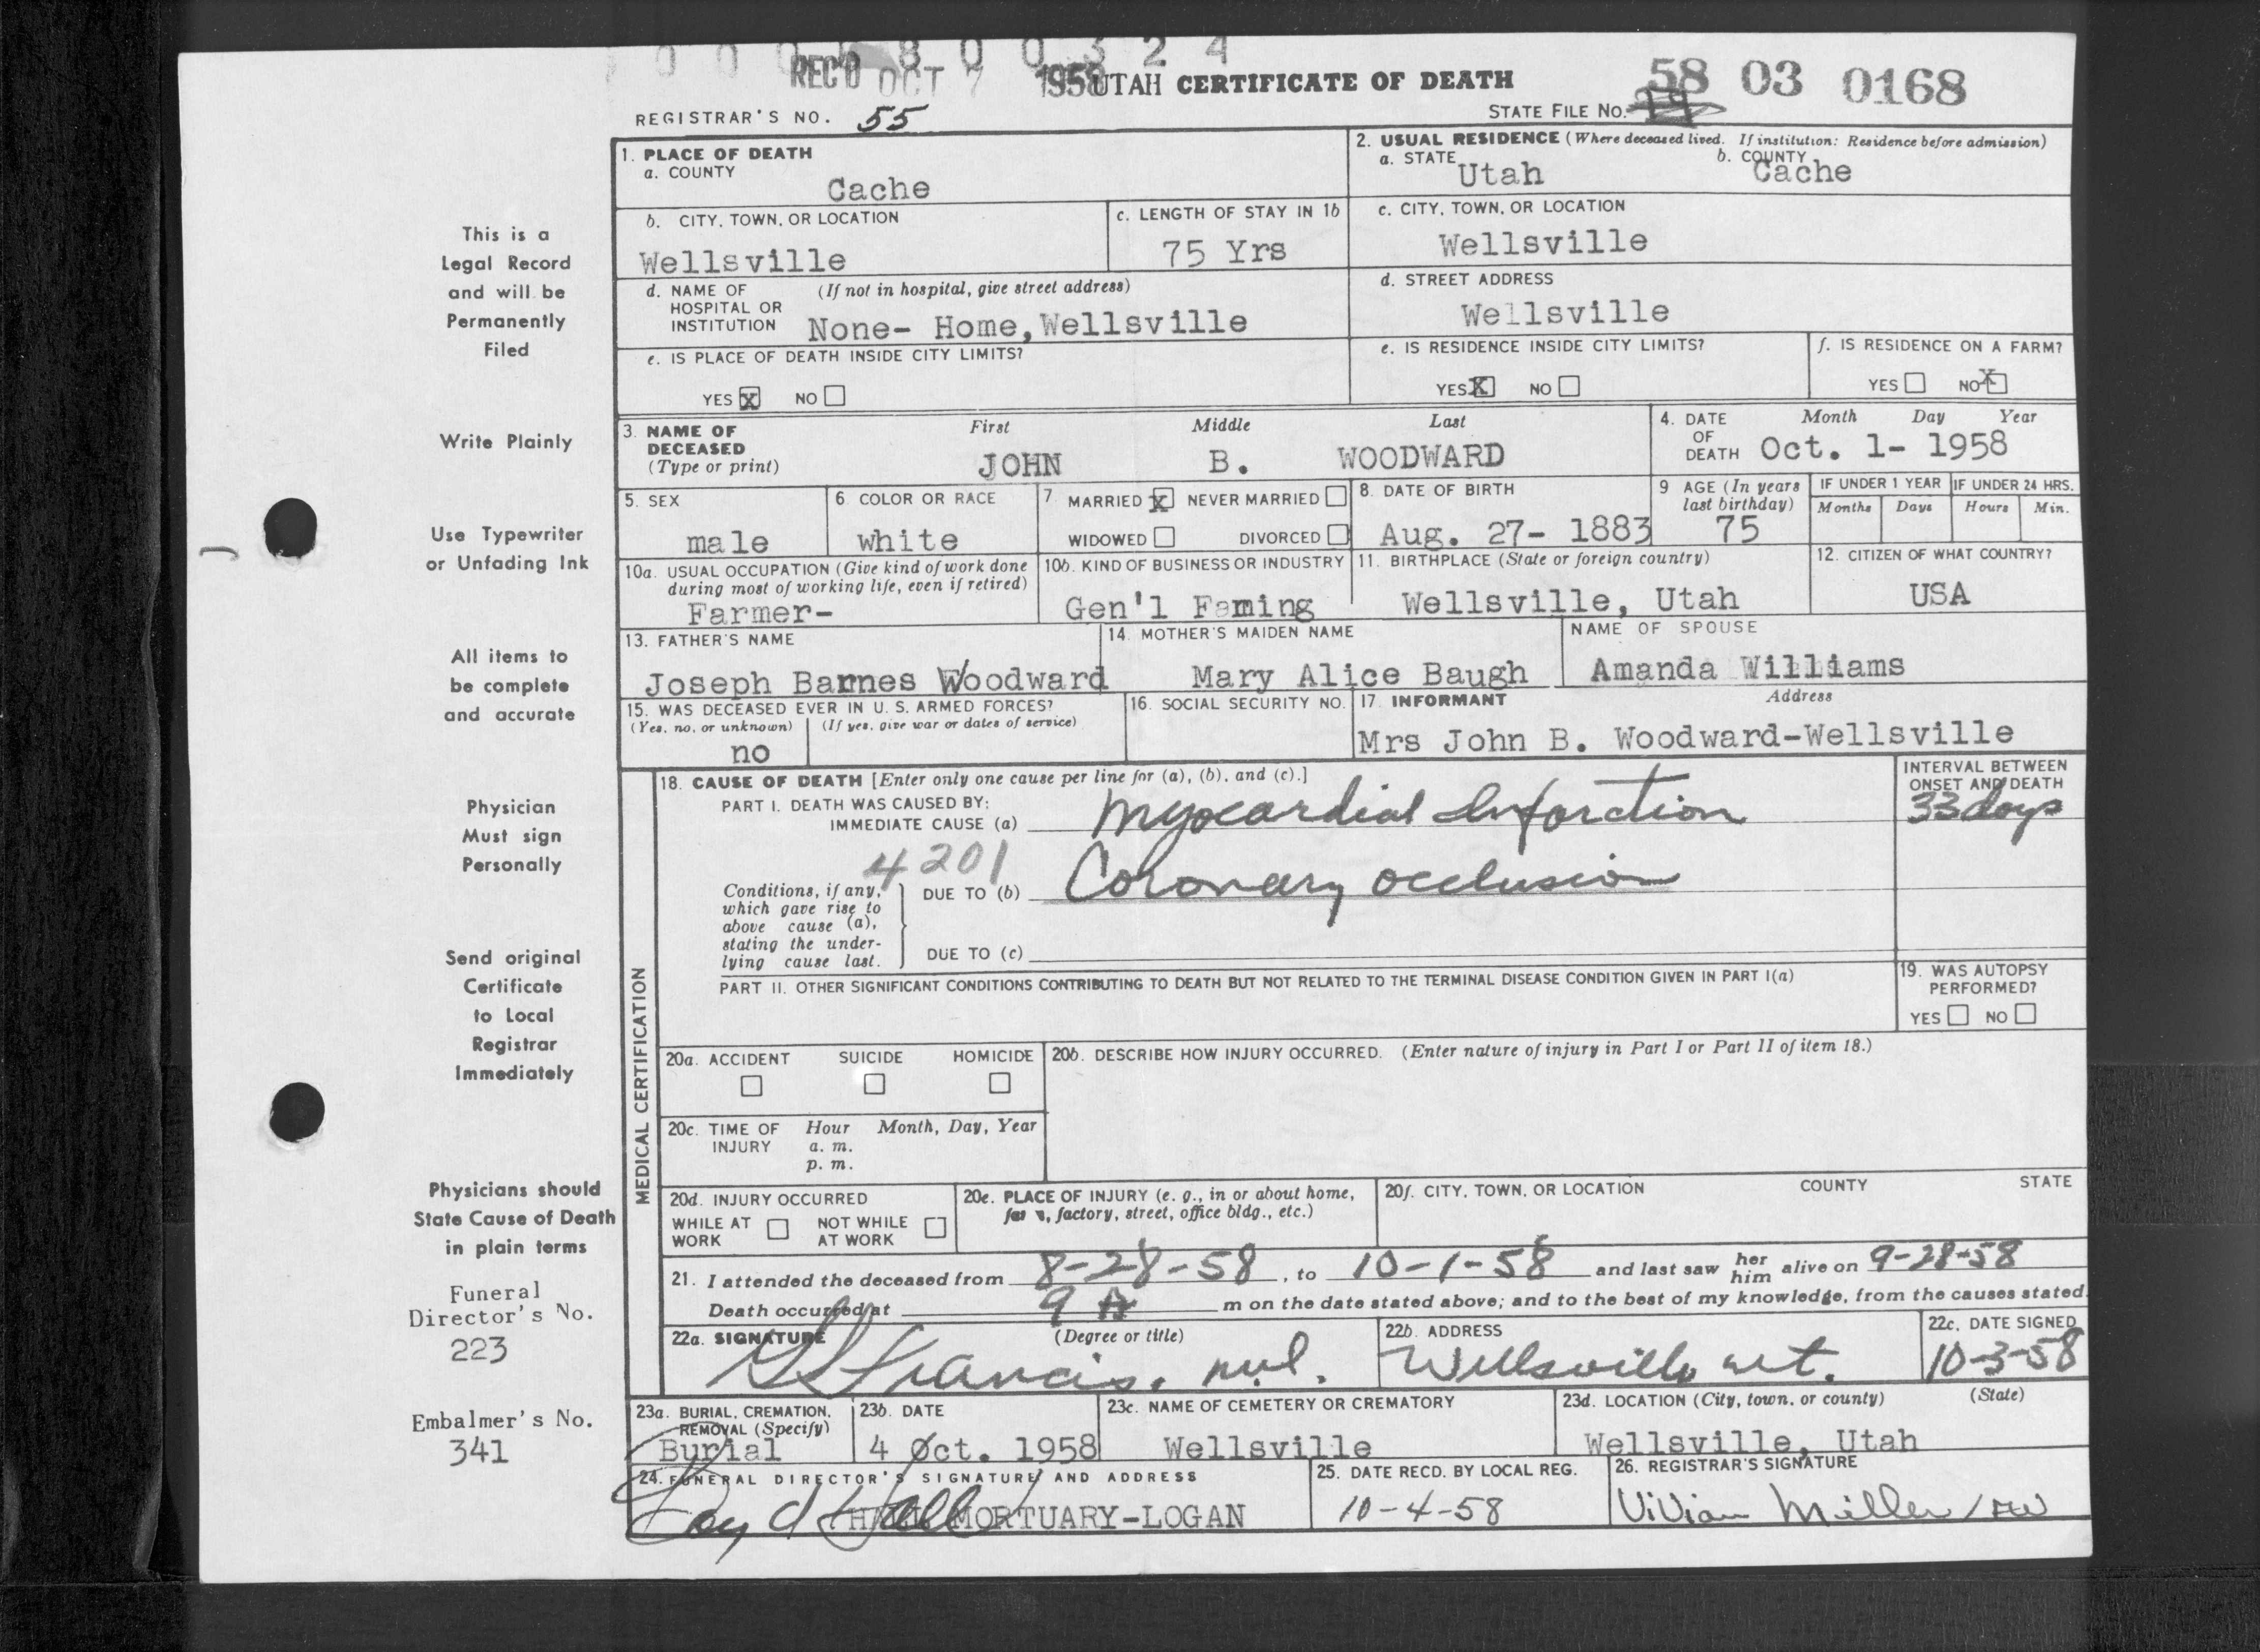 0 0 0 5 8 0 0 3 2 4
REC'D OCT 7 1958 UTAH CERTIFICATE OF DEATH 58 03 0168
REGISTRAR'S NO. 55 STATE FILE NO.
1. PLACE OF DEATH
a. COUNTY
Cache
2. USUAL RESIDENCE (Where deceased lived. If institution: Residence before admission)
a. STATE Utah b. COUNTY Cache
b. CITY, TOWN, OR LOCATION
Wellsville
c. LENGTH OF STAY IN 1b
75 Yrs
c. CITY, TOWN, OR LOCATION
Wellsville
d. NAME OF (If not in hospital, give street address)
HOSPITAL OR
INSTITUTION None- Home, Wellsville
d. STREET ADDRESS
Wellsville
e. IS PLACE OF DEATH INSIDE CITY LIMITS?
YES X NO
e. IS RESIDENCE INSIDE CITY LIMITS?
YES X NO
f. IS RESIDENCE ON A FARM?
YES NO X
3. NAME OF DECEASED (Type or print)
First Middle Last
JOHN B. WOODWARD
4. DATE OF DEATH
Month Day Year
Oct. 1- 1958
5. SEX
male
6. COLOR OR RACE
white
7. MARRIED X NEVER MARRIED
WIDOWED DIVORCED
8. DATE OF BIRTH
Aug. 27- 1883
9 AGE (In years last birthday)
75
IF UNDER 1 YEAR IF UNDER 24 HRS.
Months Days Hours Min.
10a. USUAL OCCUPATION (Give kind of work done
during most of working life, even if retired)
Farmer-
10b. KIND OF BUSINESS OR INDUSTRY
Gen'l Faming
11. BIRTHPLACE (State or foreign country)
Wellsville, Utah
12. CITIZEN OF WHAT COUNTRY?
USA
13. FATHER'S NAME
Joseph Barnes Woodward
14. MOTHER'S MAIDEN NAME
Mary Alice Baugh
NAME OF SPOUSE
Amanda Williams
15. WAS DECEASED EVER IN U. S. ARMED FORCES?
(Yes, no, or unknown) (If yes, give war or dates of service)
no
16. SOCIAL SECURITY NO.
17. INFORMANT Address
Mrs John B. Woodward-Wellsville
18. CAUSE OF DEATH [Enter only one cause per line for (a), (b), and (c).]
PART I. DEATH WAS CAUSED BY:
IMMEDIATE CAUSE (a) Myocardial Infarction
INTERVAL BETWEEN
ONSET AND DEATH
33 days
4201
Conditions, if any,
which gave rise to
above cause (a),
stating the under-
lying cause last.
DUE TO (b) Coronary occlusion
DUE TO (c)
PART II. OTHER SIGNIFICANT CONDITIONS CONTRIBUTING TO DEATH BUT NOT RELATED TO THE TERMINAL DISEASE CONDITION GIVEN IN PART I(a)
19. WAS AUTOPSY
PERFORMED?
YES NO
MEDICAL CERTIFICATION
20a. ACCIDENT SUICIDE HOMICIDE
20b. DESCRIBE HOW INJURY OCCURRED. (Enter nature of injury in Part I or Part II of item 18.)
20c. TIME OF INJURY
Hour Month, Day, Year
a. m.
p. m.
20d. INJURY OCCURRED
WHILE AT WORK NOT WHILE AT WORK
20e. PLACE OF INJURY (e. g., in or about home,
farm, factory, street, office bldg., etc.)
20f. CITY, TOWN, OR LOCATION COUNTY STATE
21. I attended the deceased from 8-28-58, to 10-1-58 and last saw her him alive on 9-28-58
Death occurred at 9 A m on the date stated above; and to the best of my knowledge, from the causes stated.
22a. SIGNATURE (Degree or title)
Francis, M.D.
22b. ADDRESS
Wellsville Ut.
22c. DATE SIGNED
10-3-58
23a. BURIAL, CREMATION,
REMOVAL (Specify)
Burial
23b. DATE
4 Oct. 1958
23c. NAME OF CEMETERY OR CREMATORY
Wellsville
23d. LOCATION (City, town, or county) (State)
Wellsville, Utah
24. FUNERAL DIRECTOR'S SIGNATURE AND ADDRESS
HALL MORTUARY-LOGAN
25. DATE RECD. BY LOCAL REG.
10-4-58
26. REGISTRAR'S SIGNATURE
Vivian Miller
This is a
Legal Record
and will be
Permanently
Filed
Write Plainly
Use Typewriter
or Unfading Ink
All items to
be complete
and accurate
Physician
Must sign
Personally
Send original
Certificate
to Local
Registrar
Immediately
Physicians should
State Cause of Death
in plain terms
Funeral
Director's No.
223
Embalmer's No.
341